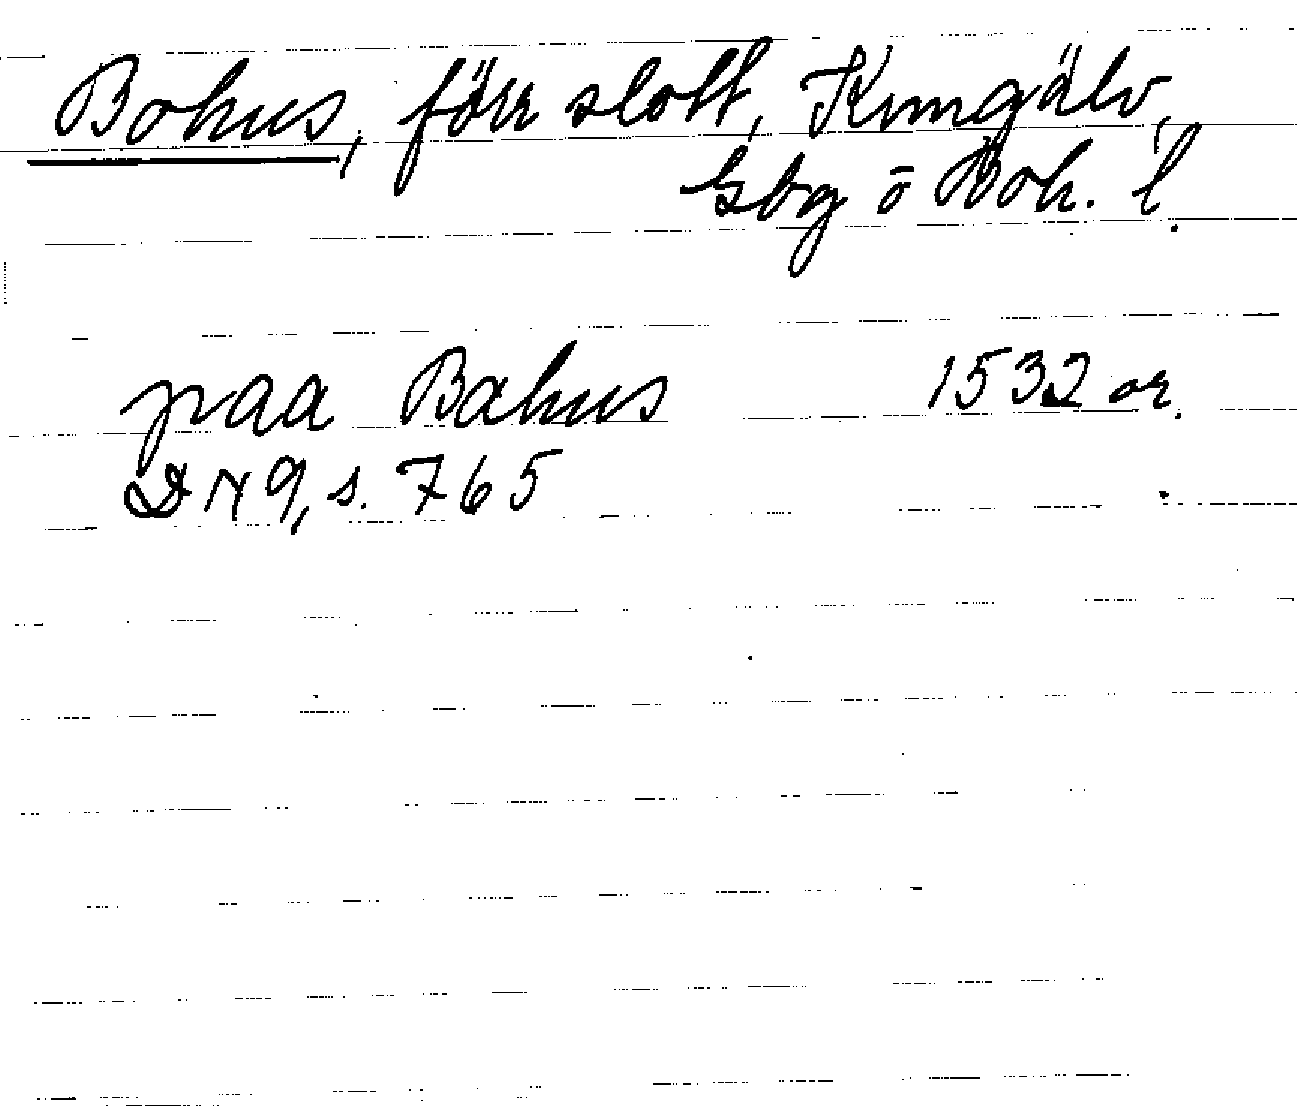 Bohus, förr slott, Kungälv,
Gbg o Boh. l.
paa Bahus 1532 or.
DN 9, s. 765